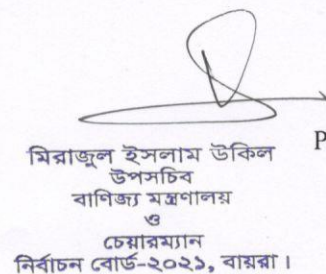 P
মিরাজুল ইসলাম উকিল
উপসচিব
বাণিজ্য মন্ত্রণালয়
ও
চেয়ারম্যান
নির্বাচন বোর্ড-২০২১, বায়রা।